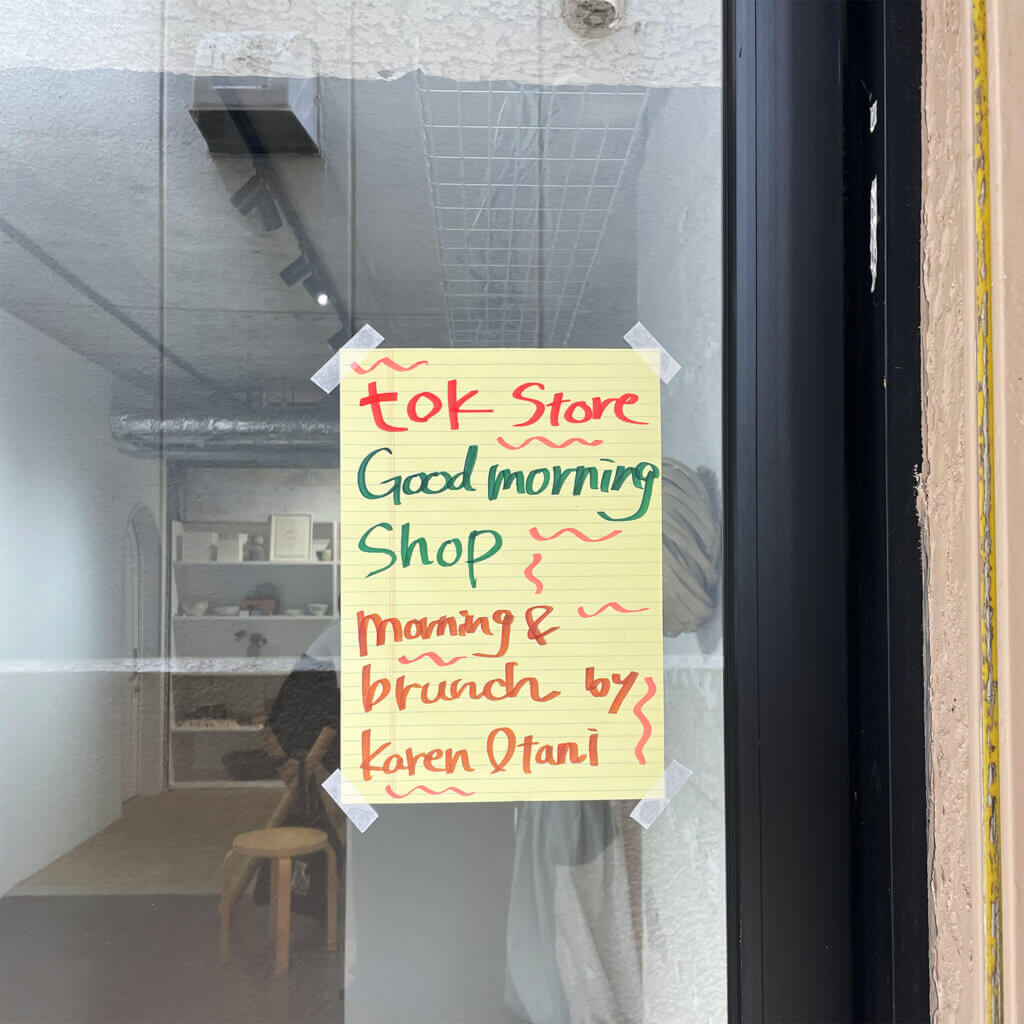 tok Store
Good morning
Shop
morning &
brunch by
Karen Otani